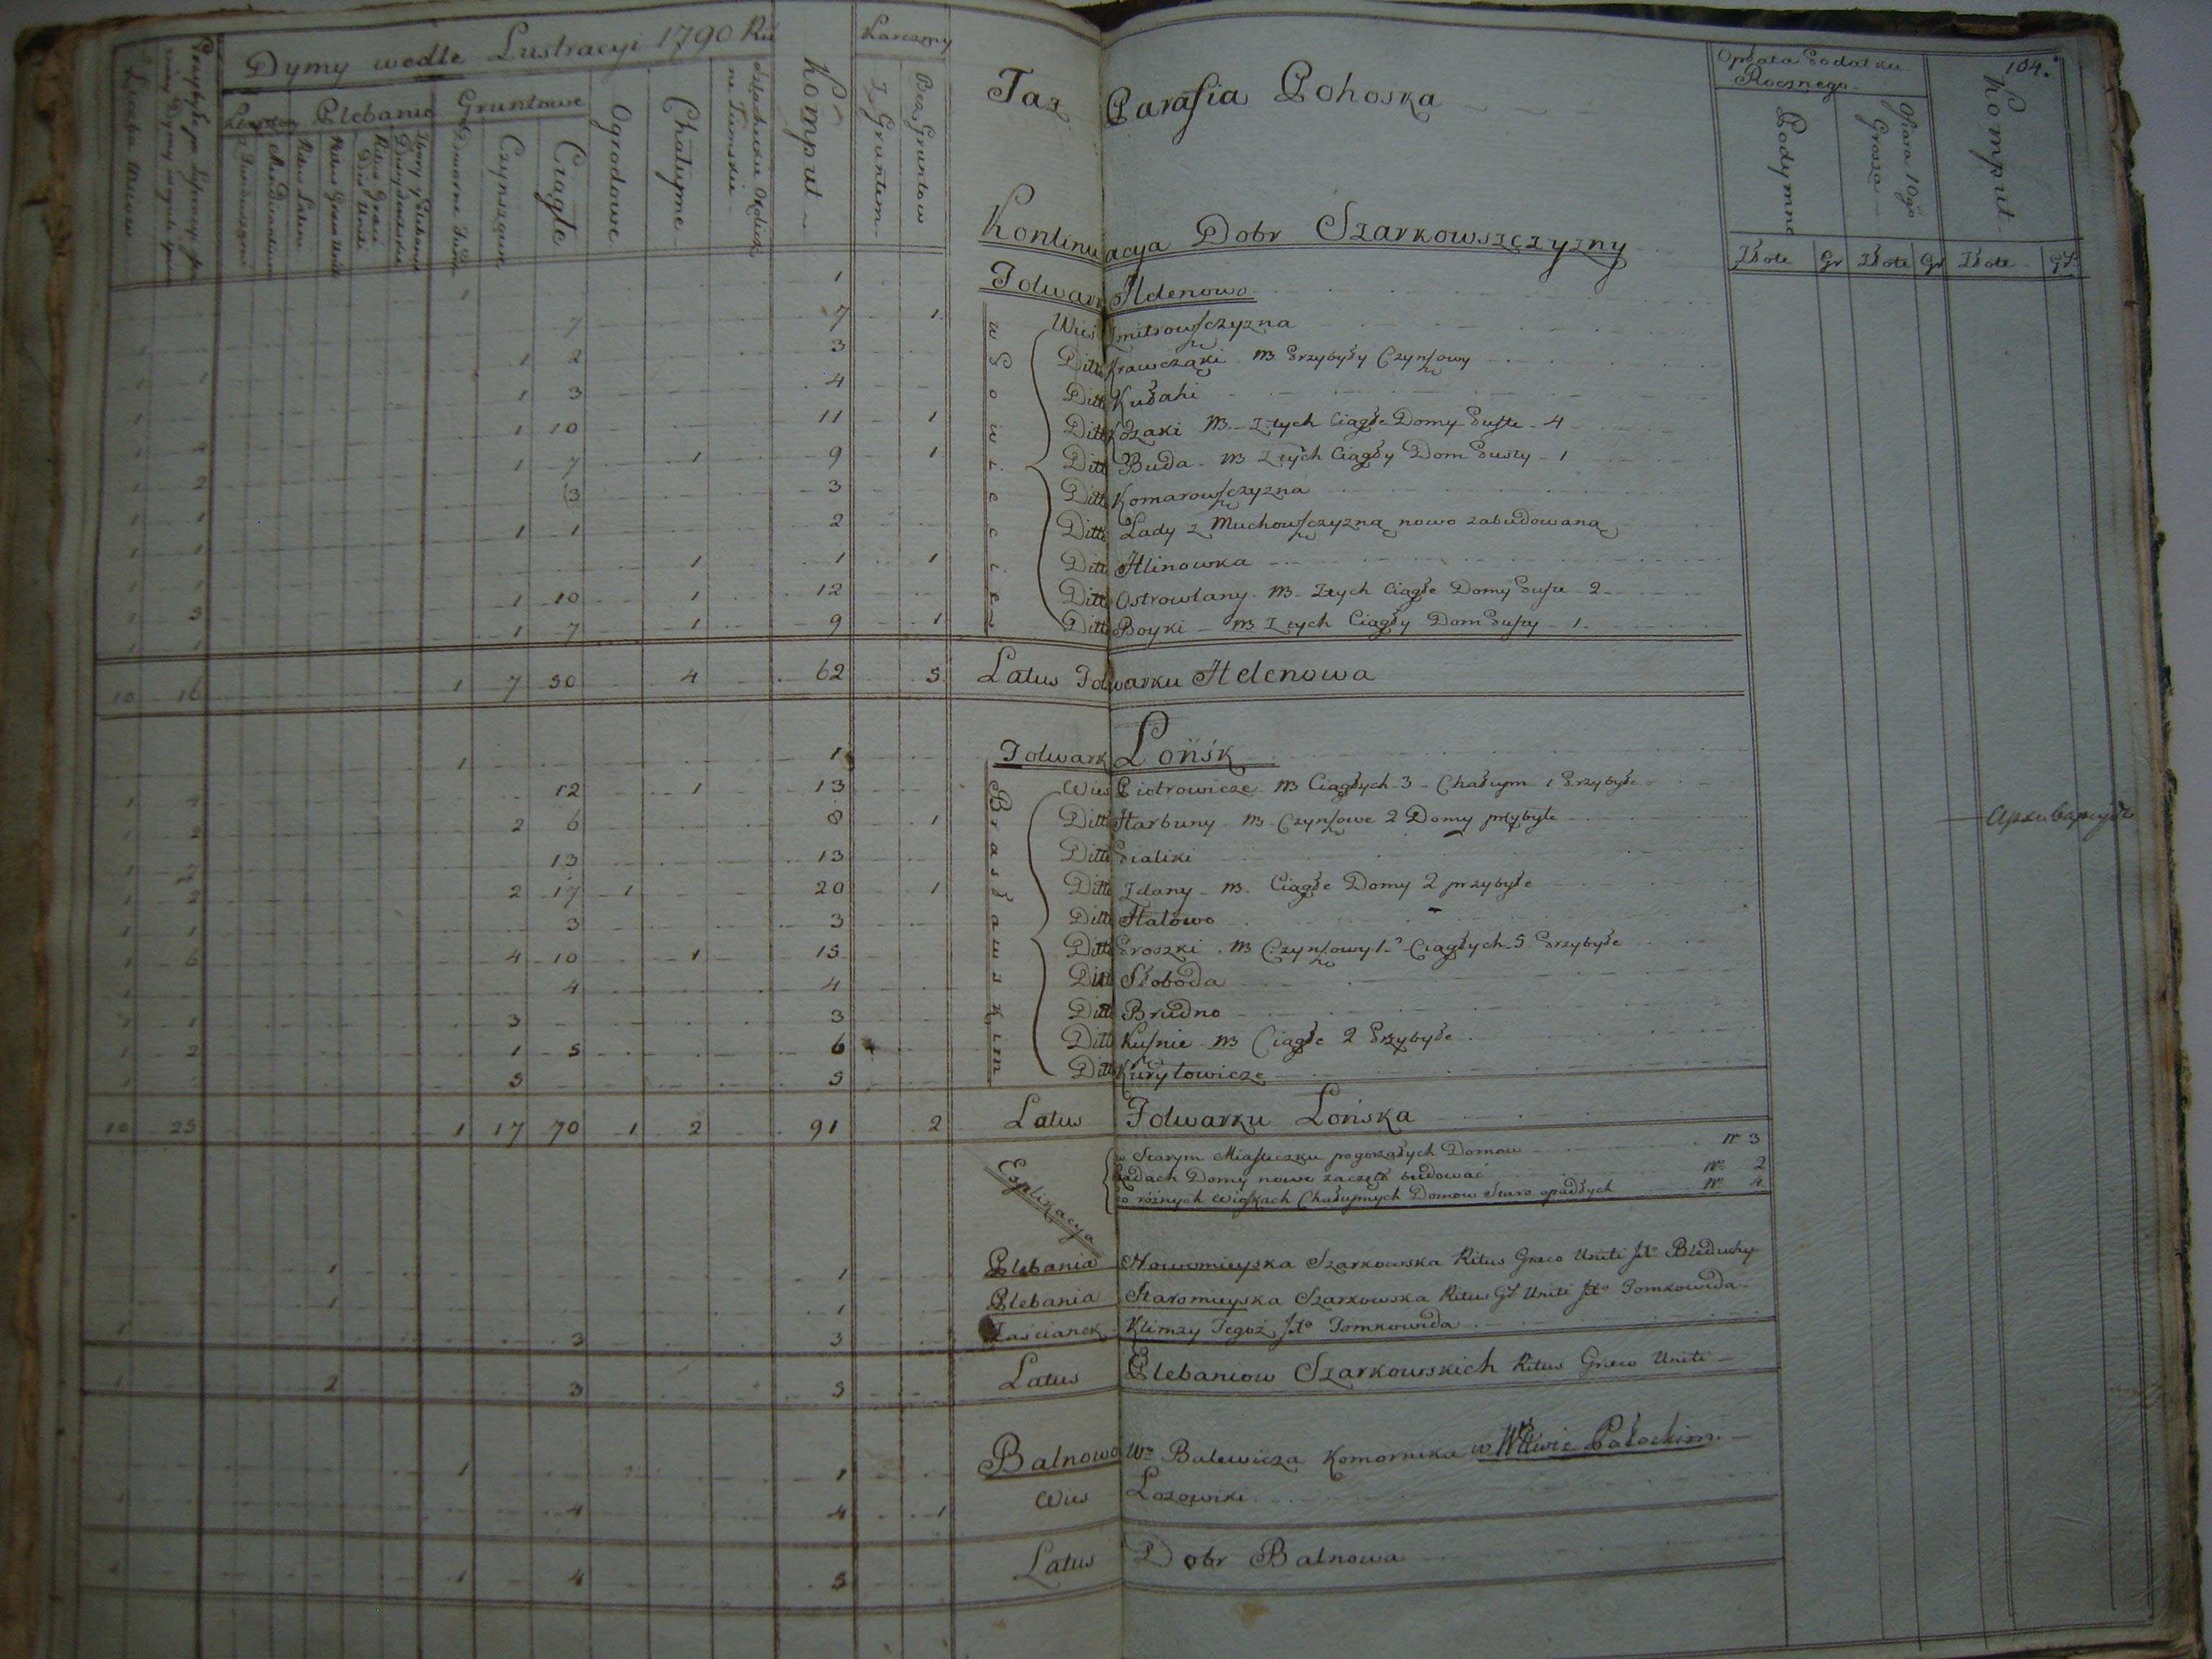 Dymy wedle Lustracyi 1790 Ru
Karczmy
Taż Parafia Pohoska
Opłata Podatku Rocznego
104.
Plebanie
Gruntowe
Czynszowe
Ciągłe
Ogrodowe
Chałupne
Komput
Z Gruntem
Bez Gruntow
Podymne
Ofiara 10go Grosza
Komput
Liczba Wiosek
Złote Gr Złote Gr Złote Gr
Kontinuacya Dobr Szarkowszczyzny
1 1 Folwark Helenowo
w Powiecie
1 7 7 1 Wieś Zmitrowszczyzna
1 1 1 2 3 Ditto Krawczaki NB Przybyły Czynszowy
1 1 3 4 Ditto Kułahi
1 2 1 10 11 1 Ditto Kozaki NB Z tych Ciągłe Domy Puste 4
1 2 1 7 1 9 1 Ditto Buda NB Z tych Ciągły Dom Pusty 1
1 1 3 3 Ditto Komarowszczyzna
1 1 1 1 2 Ditto Łady z Muchowszczyzną nowo zabudowaną
1 1 1 1 1 Ditto Hlinowka
1 5 1 10 1 12 Ditto Ostrowlany NB Z tych Ciągłe Domy Puste 2
1 1 1 7 1 9 1 Ditto Boyki NB Z tych Ciągły Dom Pusty 1
10 16 1 7 50 4 62 5 Latus Folwarku Helenowa
1 1 Folwark Łońsk
Brasławskim
1 4 12 1 13 Wieś Piotrowicze NB Ciągłych 3 Chałupn 1 Przybyłe
1 2 2 6 8 1 Ditto Harbuny NB Czynszowe 2 Domy przybyłe
1 2 13 13 Ditto Pialiki
1 2 2 17 1 20 1 Ditto Zdany NB Ciągłe Domy 2 przybyłe
1 1 3 3 Ditto Hałowo
1 6 4 10 1 15 Ditto Proszki NB Czynszowy 1 Ciągłych 5 Przybyłe
1 4 4 Ditto Słoboda
1 1 3 3 Ditto Brudno
1 2 1 5 6 Ditto Kuśnie NB Ciągłe 2 Przybyłe
1 5 5 Ditto Kuryłowicze
10 23 1 17 70 1 2 91 2 Latus Folwarku Łońska
Explikacya
w Starym Miasteczku pogorzałych Domow Nr 3
Ładach Domy nowe zaczęto budować Nr 2
po rożnych Wioskach Chałupnych Domow Staro opadłych Nr 4
1 1 Plebania Nowomieyska Szarkowska Ritus Greco Uniti Bleduchy
1 1 Plebania Staromieyska Szarkowska Ritus Gr Uniti Tomkowida
1 3 3 Zaścianek Klimzy Tegoż Tomkowida
1 2 3 5 Latus Plebaniow Szarkowskich Ritus Greco Uniti
1 1 Balnowo Balewicza Komornika w Wttwie Połockim
1 4 4 1 Wieś Łozowiki
1 1 4 5 Latus Dobr Balnowa